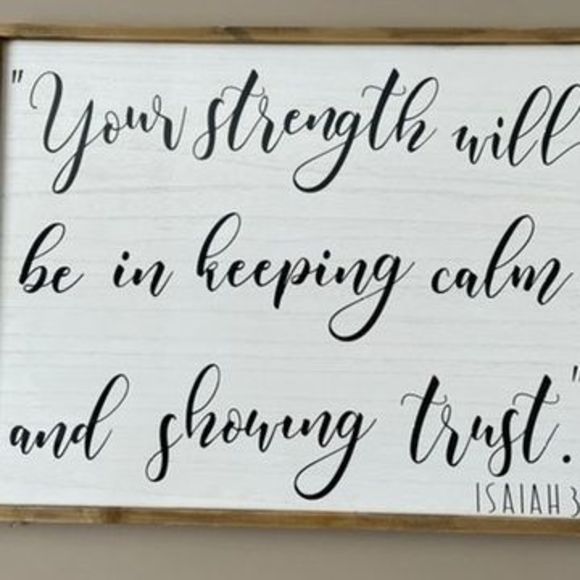 "Your strength will
be in keeping calm
and showing trust."
ISAIAH 3